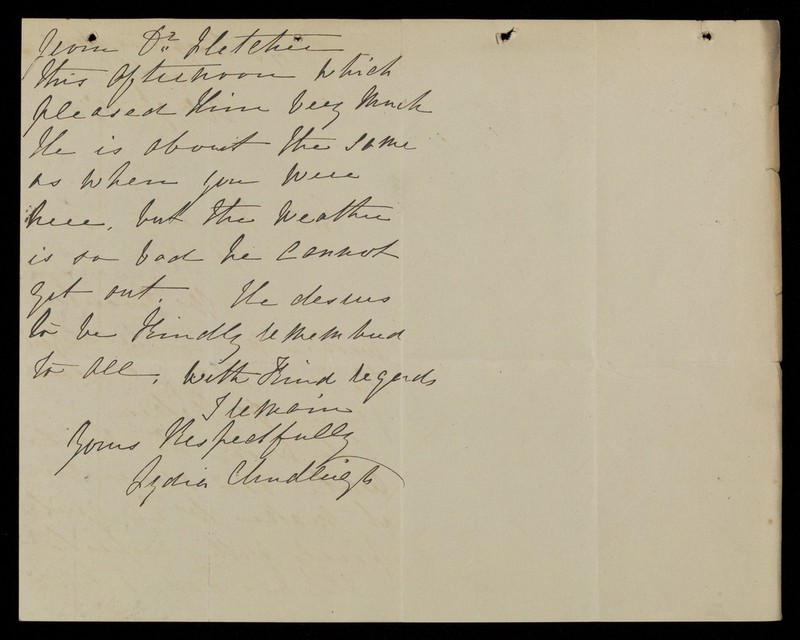 from Dr. Fletcher
this afternoon which
pleased him very much
He is about the same
as when you were
here, but the weather
is so bad he cannot
get out. He desires
to be kindly remembered
to all, with kind regards
I remain
Yours Respectfully
Lydia Chudleigh